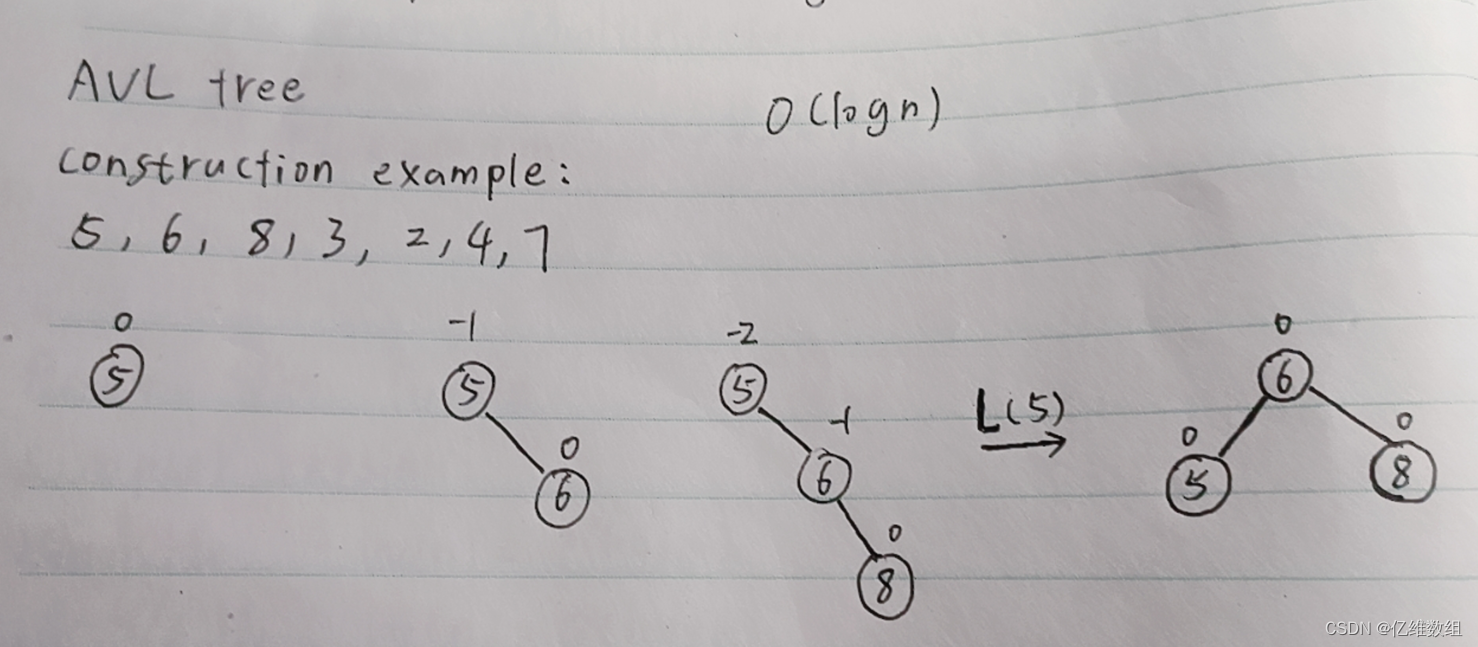 AVL tree
O(logn)
construction example:
5, 6, 8, 3, 2, 4, 7
0 -1 -2 0
5 5 5 L(5) 6
0 -1 0 0
6 6 5 8
0
8
CSDN @亿维数组